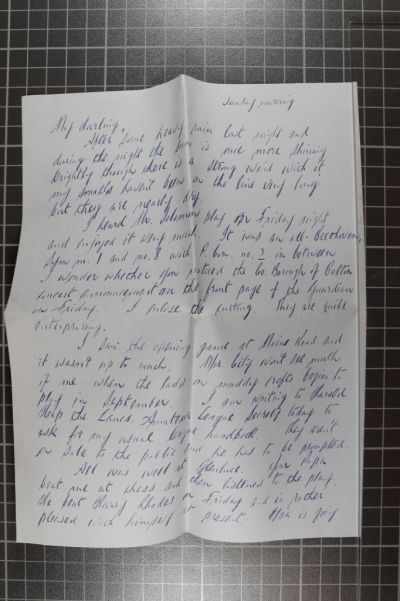 Sunday morning
My darling,
After some heavy rain last night and
during the night the sun is once more shining
brightly though there is a strong wind with it
my smalls haven't been on the line very long
but they are nearly dry.
I heard Mr. Solomon play on Friday night
and enjoyed it very much. It was an all-Beethoven,
Sym no. 1 and no. 8 with P. Con. no. in between
I wonder whether you noticed the Co. Borough of Bolton
concert announcement on the front page of the Guardian
on Friday. I enclose the cutting. They are quite
enterprising.
I saw the opening game at Maine Road and
it wasn't up to much. City won't see much
of me when the lads on muddy crofts begin to
play in September. I am writing to Harold
the Lancs. Amateur League Secretary today to
ask for my usual handbook. They aren't
on sale to the public and he has to be prompted.
All was well at Your Papa
beat me at chess and then listened to the play.
He beat Harry Rhodes on Friday and is rather
pleased with himself at present. is going